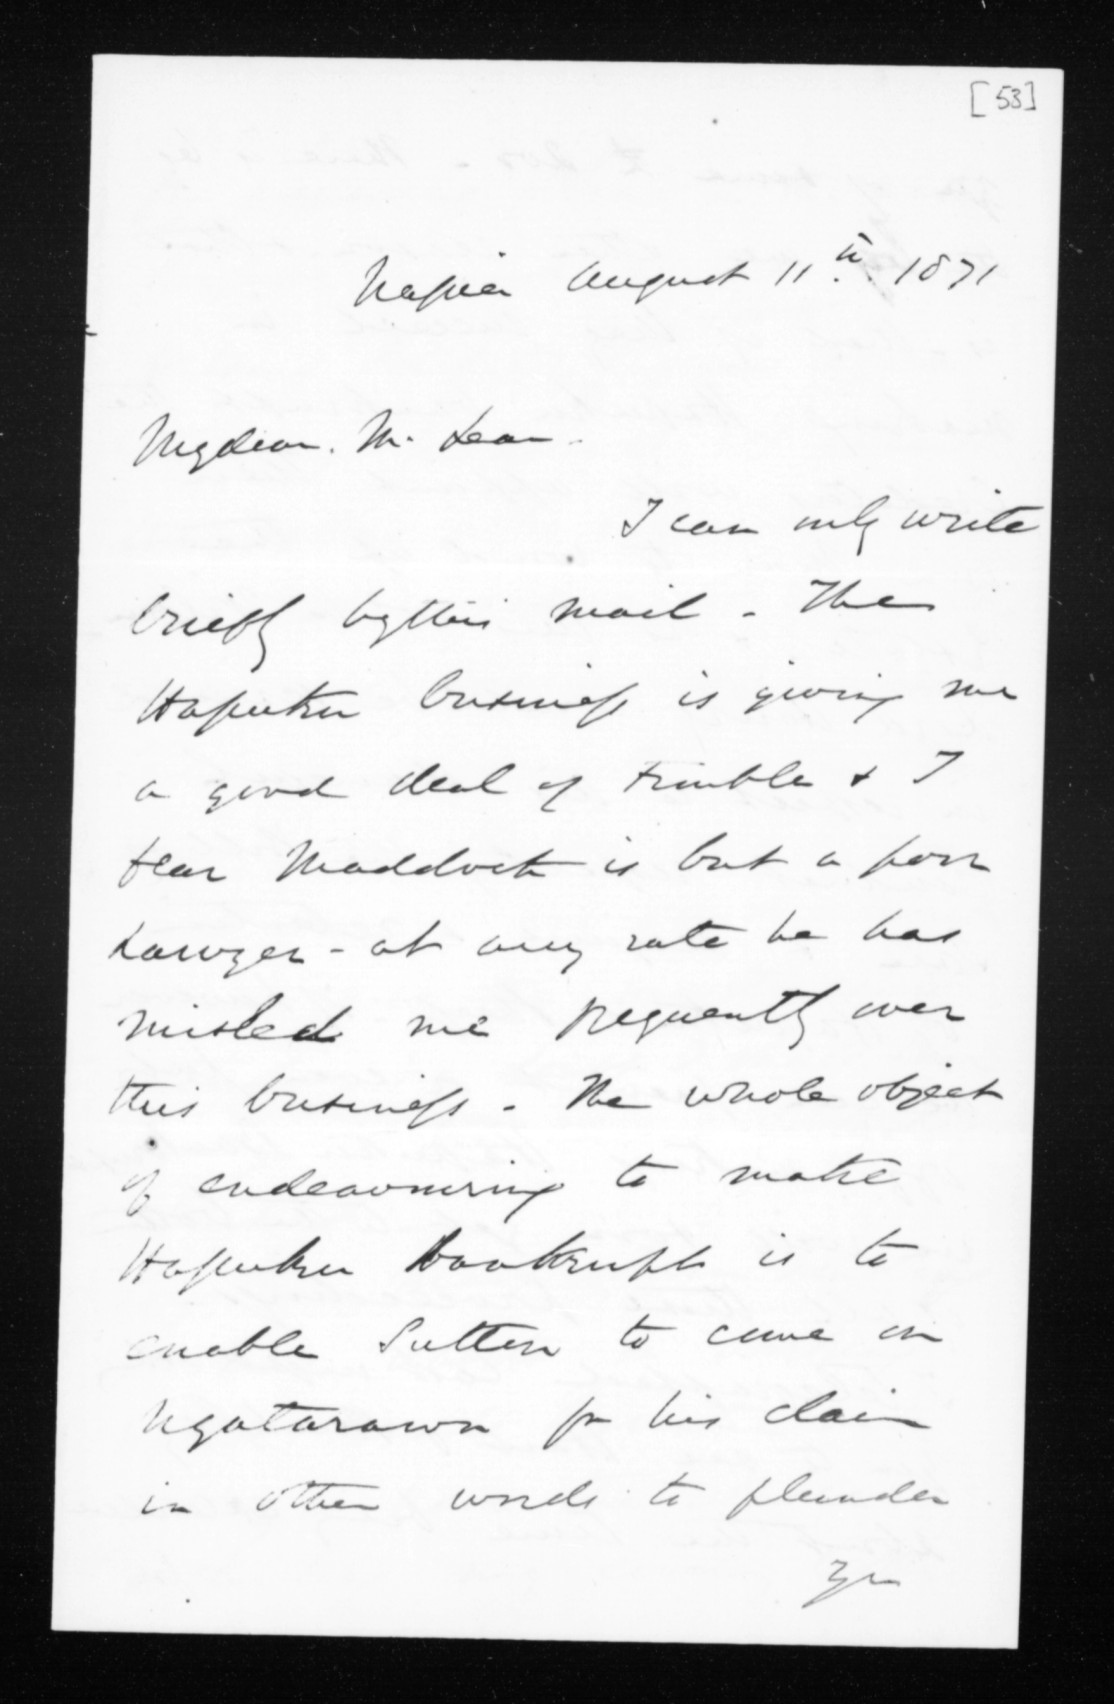 [53]
Napier August 11th. 1871
My dear. Mr. Lean.
I can only write
briefly by this mail - The
Hapuku business is giving me
a good deal of trouble & I
fear Maddock is but a poor
Lawyer - at any rate he has
misled me frequently over
this business - The whole object
of endeavouring to make
Hapuku bankrupt is to
enable Sutton to come on
Ngatarawa for his claim
in other words to plunder
you